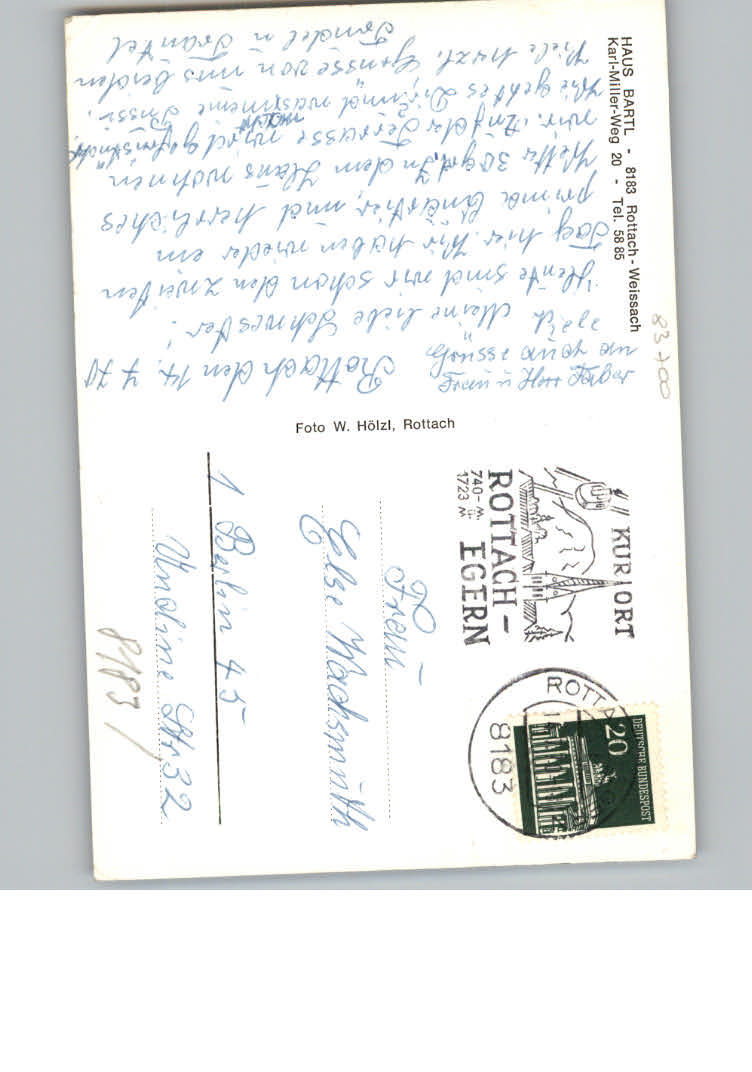 HAUS BARTL - 8183 Rottach - Weissach
Karl-Miller-Weg 20 - Tel. 58 85
Rottach den 14. 7. 70
Meine liebe Schwester!
Heute sind wir schon den zweiten
Tag hier. Wir haben wieder ein
prima Quartier, und herrliches
Wetter 30 grd. In dem Haus wohnen
wir. Auf der Terasse wird gefrühstückt
Wie geht es Dir, und was meine Füsse.
Viele herzl. Grüsse von uns beiden
Frau u Herr
Foto W. Hölzl, Rottach
KURORT
ROTTACH-
EGERN
740 m ü.
1723 M
ROTTA
8183
DEUTSCHE BUNDESPOST
20
Frau
Else Wachsmuth
1 Berlin 45
Undine Str 32
8183
83700